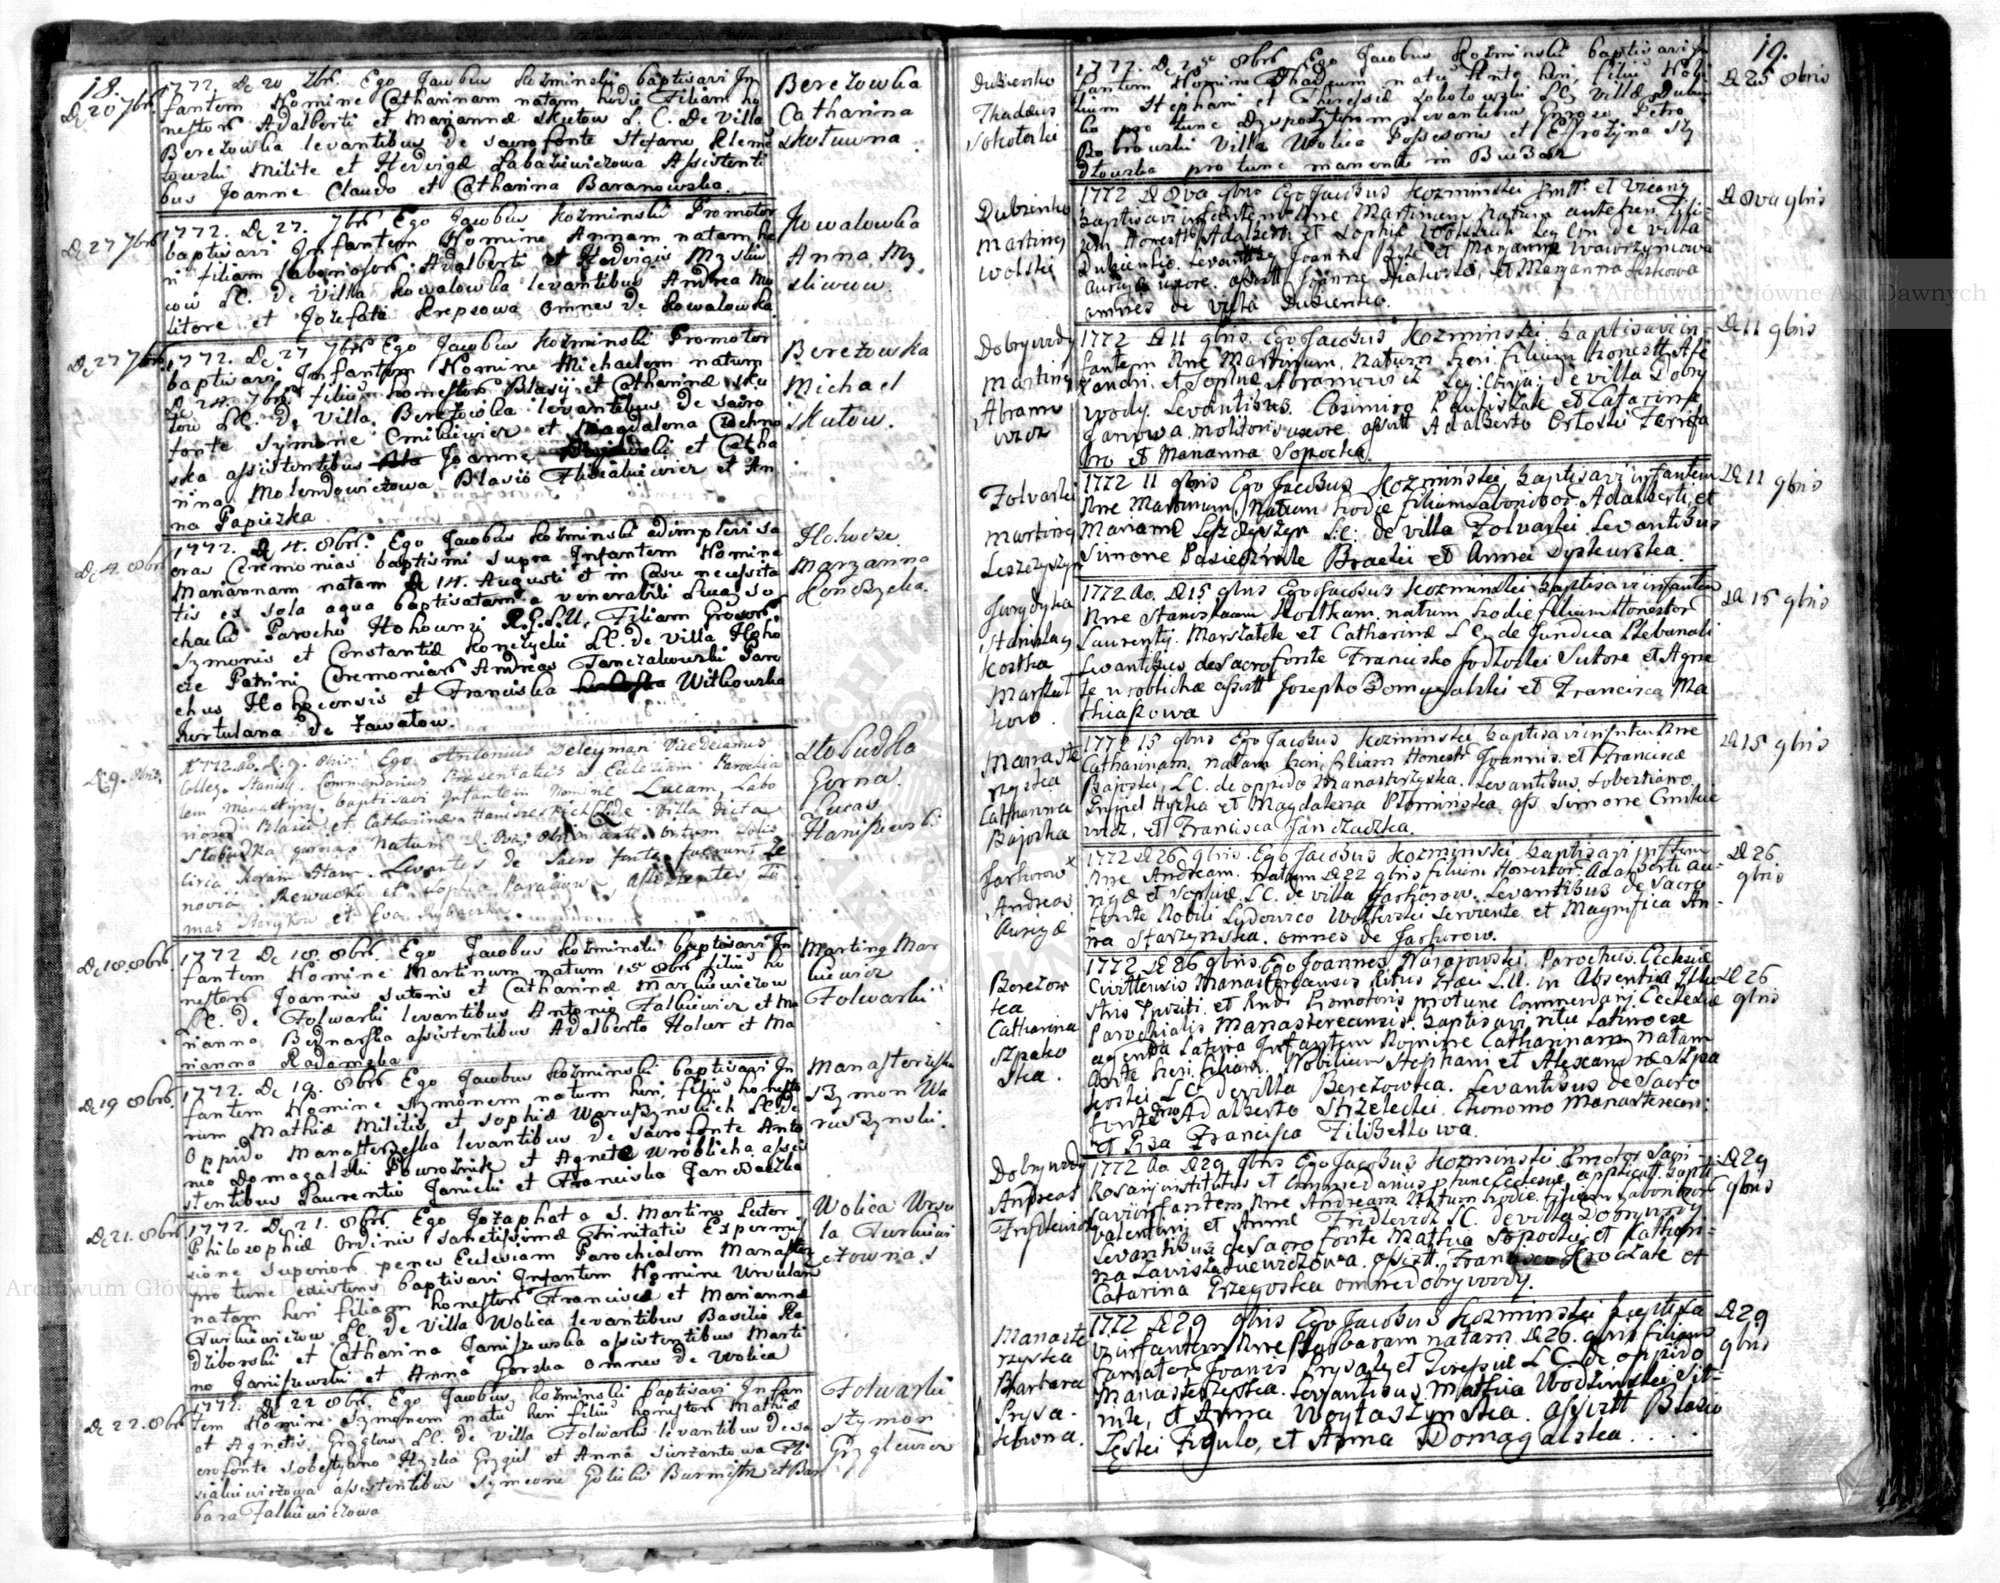 18.
De 20 7bris
1772. De 20 7bris. Ego Jacobus Kozminski baptisavi In
fantem Nomine Catharinam natam hodie Filiam ho
nestor Adalberti et Mariannæ Skutow L. C. De Villa
Berezowka levantibus de sacro fonte Stefano Klemę
towski Milite et Hedvige Łabaziewiczowa Assistenti
bus Joanne Claudo et Catharina Baranowska.
Berezowka
Catharina
Skutuwna.
De 27 7bris
1772. De 27. 7bris Ego Jacobus Kozminski Promotor
baptisavi Infantem Nomine Annam natam he
ri filiam Adalberti et Hedvigis Mysliw
cow LC. de Villa Kowalowka levantibus Andrea Mo
litore et Jozefata Krepsowa omnes de Kowalowka.
Kowalowka
Anna My
sliwcow.
De 27 7bris
1772. De 27 7bris Ego Jacobus Kozminski Promotor
baptisavi Infantem Nomine Michaelem natum
De 24. 7bris filium honestor Blasii et Catharinæ Sku
tow LC. de Villa Berezowka levantibus de sacro
fonte Szymone Cmikiewicz et Magdalena Czechno
ska assistentibus Joanne et Catha
rina Molendowiczowa Blasio et An
na Papiezka.
Berezowka
Michael
Skutow.
De 4. 8bris
1772. De 4. 8bris. Ego Jacobus Kozminski adimplevi sa
cras Ceremonias baptismi supra Infantem Nomine
Mariannam natam De 14. Augusti et in Casu necessita
tis ex sola aqua baptisatam a venerabili Luca So
chacki Parocho Hohowensi R.G.L.U. Filiam Grosor
Szymonis et Constantiæ Konczycki LC. de Villa Hoho
cze Patrini Ceremoniar Andreas Tanczakowski Paro
chus Hohocensis et Franciska Witkowska
hortulana de Zawalow.
Hohocze
Maryanna
Konczycka.
De 9. 8bris
1772. Do. De 9. 8bris. Ego Antonius Deleyman Vicedecanus
Colleg. Stanisl. Commendarius Præsentatus ad Ecclesiam Parochia
lem Manastyrz. baptisavi Infantem Nomine Lucam, Labo
Blasii et Catharinæ Haniszewskich LC de Villa dicta
Słobudka gorna natum De 8va 8bris ante ortum Solis
circa horam 8tam. Levantes de Sacro fonte fuerunt Ze
novia Rewucki et Sophia Assistentes To
mas Strykow et Eva
Słobudka
Gorna.
Lucas
Haniszewski
De 18. 8bris
1772 De 18. 8bris. Ego Jacobus Kozminski baptisavi In
fantem Nomine Martinum natum 15 8bris filiu ho
nestor Joannis Sutoris et Catharinæ Markiewiczow
LC. de Folwarki levantibus Antonio Falkiewicz et Ma
rianna Bednarska assistentibus Adalberto Holow et Ma
rianna Radamska
Marting Mar
kiewicz
Folwarki
De 19 8bris.
1772. De 19. 8bris Ego Jacobus Kozminski baptisavi In
fantem Nomine Szymonem natum heri, filiu honesto
rum Mathiæ Militis et Sophiæ Waruszynskich LC. de
Oppido Manasterzeska levantibus de sacro fonte Anto
nio Domagalski Powroznik et Agnete Wroblicha assis
stentibus Laurentio Janicki et Franciska Janczaczka
Manasterzeska
Szymon Wa
ruszynski.
De 21. 8bris
1772. De 21. 8bris. Ego Jozaphat a S. Martino Lector
Philosophiæ Ordinis Sanctissimæ Trinitatis Ex permis
sione Superiori penes Ecclesiam Parochialem Manaster
pro tunc existens baptisavi Infantem Nomine Ursulam
natam heri filiam honestor Francisci et Mariannæ
Turkiewiczow LC. de Villa Wolica levantibus Basilio Ra
dziborski et Catharina Janiszewska assistentibus Marti
no Janiszewski et Anna Gorska omnes de Wolica
Wolica Ursu
la Turkiewi
czowna.
De 22. 8bris
1772. De 22 8bris. Ego Jacobus Kozminski baptisavi Infan
tem Nomine Szymonem natu heri filiu honestor Mathiæ
et Agnetis Gryglow LC. de Villa Folwarki levantibus de sa
cro fonte Sobestyano Hyzka Grygiel et Anna Surzantowa
assistentibus Symeone Golicki Burmistrz et Bar
bara Falkiewiczowa
Folwarki
Szymon
Gryglewicz
19.
Dubienko
Thadæus
Sokołoski
1772. De 25 8bris. Ego Jacobus Kozminski baptisavi In
fantem Nomine Thadeum natu Ante heri, filiu Nobi
lium Stephani et Theressiæ Sokołowski LC. Villæ Dubien
ko pro tunc Dyspozytorum levantibus Gnroso Petro
Bobrowski Villæ Wolica Possesoris et Effrozyna Sty
dłowska pro tunc manente in Buczacz
De 25 8bris
Dubienko
Marting
Wolski
1772 De 8va 9bris Ego Jacobus Kozminski et Vicarius
baptisavi infantem Nne Martinum natum antehen fili
um Honestt Adalberti et Sophiæ Wolskich Leg Con de villa
Dubienko. Levantibus Joanne et Maryanna Wawrzynowa
uxore. assistt Joanne et Maryanna Leskowa
omnes de villa Dubienko.
De 8va 9bris
Dobrywody
Marting
Abramo
wicz
1772 De 11 9bris. Ego Jacobus Kozminski baptisavi in
fantem Nne Martinum, Natum heri, filium honestt Ale
xandri et Sophiæ Abramowicz Leg: Conju: de villa Dobry
wody. Levantibus. Casimiro et Catarina
Janowa Molitoris uxore assistt Adalberto Orłoski Ferrifa
bro et Marianna Sopocka.
De 11 9bris
Folwarki
Marting
Leszczyszyn
1772 11 9bris Ego Jacobus Kozminski baptisavi infantem
Nne Martinum Natum hodie filium Laborioor Adalberti et
Marianæ Leszczyszyn L.C. de villa Folwarki Levantibus
Simone Pasiecznik Bracki et Annæ Dyskurska.
De 11 9bris
Jurydyka
Stanislaus
Kostka
Marszał
kow.
1772 Ao. De 15 9bris Ego Jacobus Kozminski baptisavi infantem
Nne Stanislaum Kostkam natum hodie filium Honestor
Laurentij. Marszałek et Catharinæ LC. de Juridica Plebanali
Levantibus de Sacro fonte Francisko Jodłoski Sutore et Agne
te Wroblicha assistt Josepho Domagalski et Francisca Ma
thiaszowa
De 15 9bris
Manaste
rzyska
Catharina
Bajorka
1772 15 9bris Ego Jacobus Kozminski baptisavi infantem Nne
Catharinam, natam heri, filiam Honestr Joannis et Franciscæ
Bajoski, LC. de oppido Manasterzyska. Levantibus Sobestiano
Grygiel Hyzka et Magdalena Płominska, ass Simone Cmikie
wicz, et Francisca Janczaczka.
De 15 9bris
Jarhorow
Andreas
Kuryæ
1772 De 26 9bris. Ego Jacobus Kozminski baptisavi infantem
Nne Andream. natum De 22 9bris filium Honestor. Adalberti
et Sophiæ LC. de villa Jarhorow. Levantibus de Sacro
fonte Nobili Lydovico Wolferski Serviente et Magnifica An
na Starzynska. omnes de Jarhorow.
De 26
9bris
Berezow
ka
Catharina
Szpako
ska.
1772 De 26 9bris. Ego Joannes Narajowski Parochus. Ecclesiæ
Civittensis Manasterzansis Ritus Græci L.U. in Absentia Illu
stris Ppsiti. et Rndi Promotoris protunc Commendarij Ecclesiæ
Parochialis Manasterecensis. baptisavi ritu latino ex
agenda Latina Infantem Nomine Catharinam natam
Ante heri. filiam. Nobilium Stephani et Alexandræ Szpa
koski LC de villa Berezowka. Levantibus de Sacro
fonte Adalberto Strzelecki. Ekonomo Manasterecen:
et Francisca Filibellowa.
De 26
9bris
Dobrywody
Andreas
Frydlewicz
1772 Ao. De 29 9bris Ego Jacobus Kozminski Pmotor Sacri
Rosarij institutus et Commedarius ptunc Ecclesiæ applicatt bapti
savi infantem Nne Andream Natum hodie. filium Laborioor
Valentini et Annæ Fridlewicz LC. de villa Dobrywody
Levantibus de Sacro fonte Mattia Sopocki et Cathari
na Zawislakiewiczowa. assistt. Francisco Kroczak et
Catarina Przegoska omnes Dobrywody.
De 29
9bris
Manaste
rzyska
Barbara
Prysa-
szkowna.
1772 De 29 9bris Ego Jacobus Kozminski baptisa
vi infantem Nne Barbaram natam. De 26. 9bris filiam
famator Joannis et Teressiæ LC. De oppido
Manasterzyska. Levantibus. Mathia Wodzinski Sit-
nik, et Anna Woytaszynska. assistt Blasio
Zęski Figulo, et Anna Domagalska. . . .
De 29
9bris
Archiwum Główne Akt Dawnych
Archiwum Główne Akt Dawnych